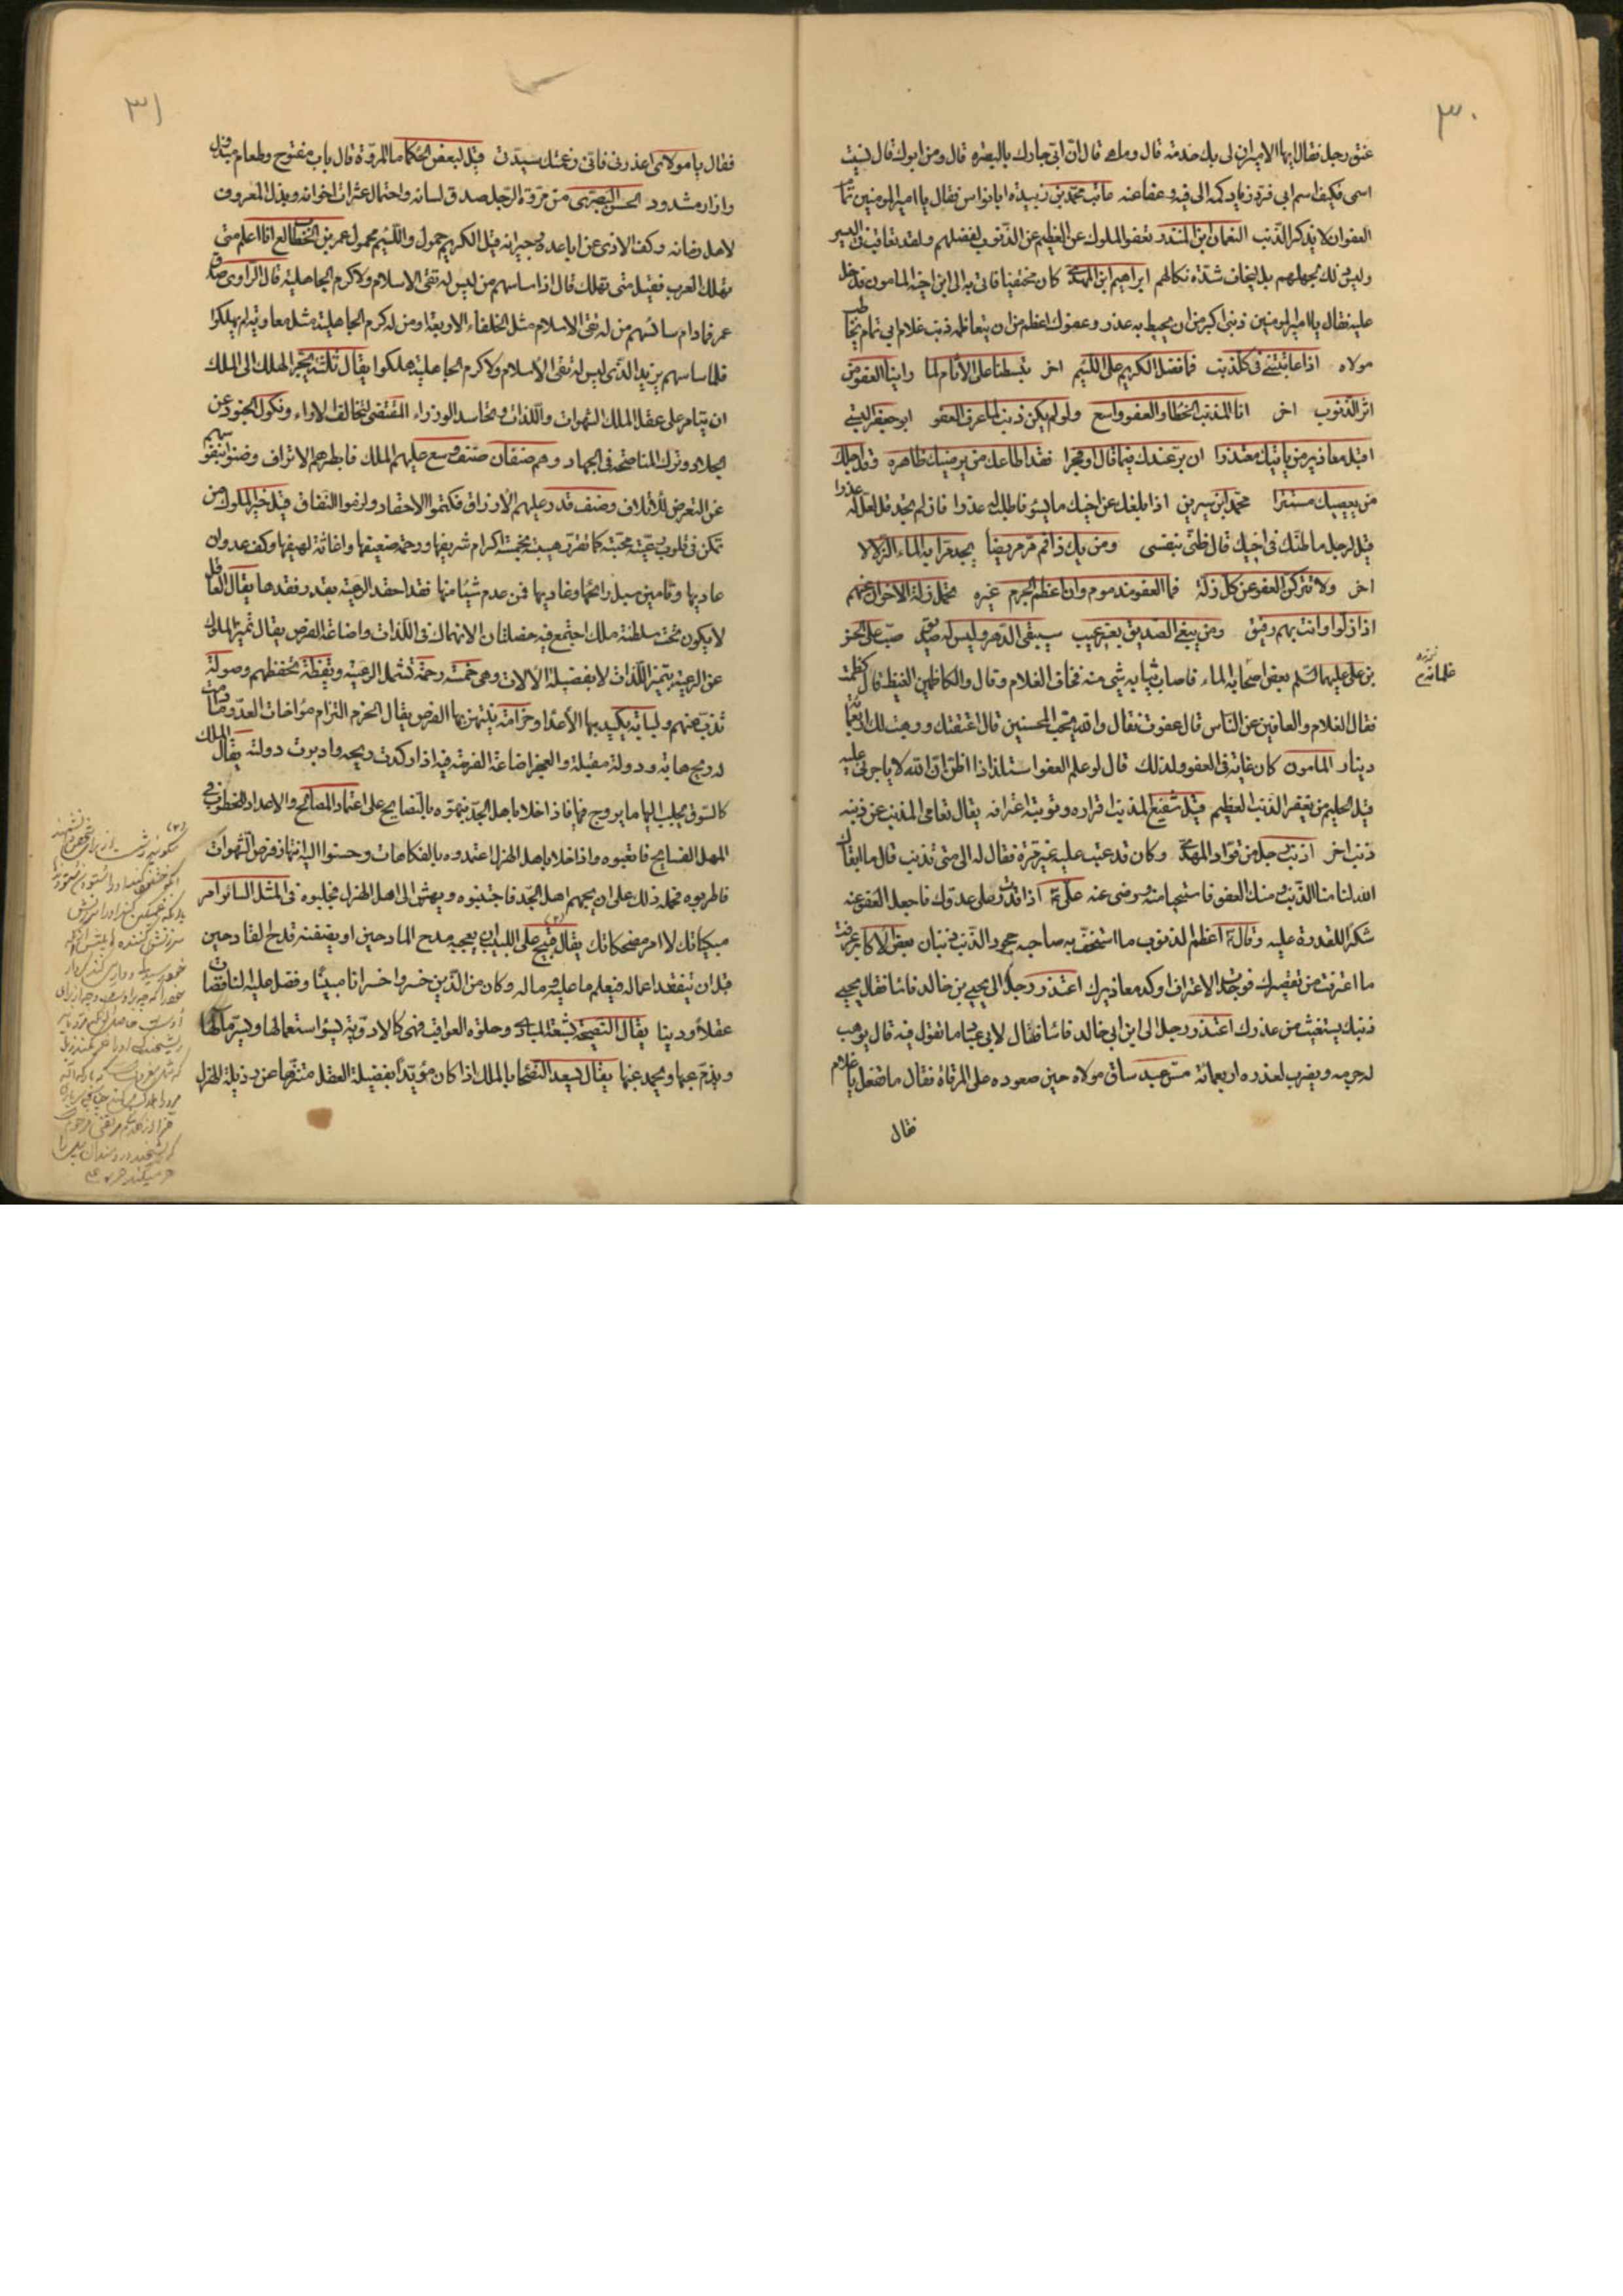 ٣٠
عنق رجل فقال ايها الامير ان لى بك حرمة قال وما هى قال ان ابى جارك بالبصرة قال ومن ابوك قال نسيت
اسمى فكيف اسم ابى فرد زياد كمه الى فيه وعفا عنه عاتب محمد بن زبيدة ابا نواس فقال يا امير المؤمنين تمام
العفو ان لا يذكر الذنب النعمان ابن المنذر تعفو الملوك عن العظيم من الذنوب لفضلهم ولقد تعاقب فى اليسير
وليس ذلك بجهلهم بل ليخاف شدة نكالهم ابراهيم ابن المهدى كان مختفيا فاتى به الى ابن اخيه المامون فدخل
عليه فقال يا امير المؤمنين ذنبى اكبر من ان يحيط به عذر وعفوك اعظم من ان يتعاظمه ذنب غلام ابى تمام يخاطب
مولاه اذا عاتبتنى فى كل ذنب فما فضل الكريم على اللئيم اخر تبسطنا على الآثام لما راينا العفو من
اثر الذنوب اخر انا المذنب الخطاء والعفو واسع ولو لم يكن ذنب لما عرف العفو ابو جعفر
اقبل معاذير من ياتيك معتذرا ان بر عندك فيما قال او فجرا فقد اطاعك من يرضيك ظاهره وقد اجلك
من يعصيك مستترا محمد ابن سيرين اذا بلغك عن اخيك ما يسوء فاطلب له عذرا فان لم تجد فقل لعل له عذرا
قيل لرجل ما ظنك فى اخيك قال ظنى بنفسى ومن يك ذا فم مر مريض يجد مرا به الماء الزلالا
اخر ولا تتركن العفو عن كل زلة فما العفو مذموم وان اعظم الجرم غيره تحمل زلة الاخوان عنهم
اذا زلوا وانت بهم رفيق ومن يبغى الصديق بغير عيب سيبقى الدهر وليس له صديق صب على الحسن
بن على عليهما السلم بعض اصحابه الماء فاصاب ثيابه شئ منه فخاف الغلام وقال والكاظمين الغيظ قال كظمت
غلمانه
فقال الغلام والعافين عن الناس قال عفوت فقال والله يحب المحسنين قال اعتقتك ووهبت لك
دينار المامون كان غاية فى العفو ولذلك قال لو علم العفو استلذاذا اظن ان الله لا ياجرنى عليه
قيل الحليم من يغفر الذنب العظيم قيل شفيع المذنب اقراره وتوبته اعترافه يقال تعامى المذنب عن ذنبه
ذنب اخر اذنب رجل من قواد المهدى وكان قد عتب عليه غير مرة فقال له الى متى تذنب قال ما ابقاك
الله لنا منا الذنب ومنك العفو فاستحيا منه ورضى عنه على ع اذا قدرت على عدوك فاجعل العفو عنه
شكرا للقدرة عليه وقال ع اعظم الذنوب ما استخف به صاحبه جحود الذنب ذنبان بعض الاكابر عرفت
ما اعترفت من تقصيرك قبل الاعتراف وكد معاذيرك اعتذر رجل الى يحيى بن خالد فاساء فقال يحيى
ذنبك يستغيث من عذرك اعتذر رجل الى ابن ابى خالد فاساء فقال لابى عباد ما تقول فيه قال يوهب
له جرمه ويضرب لعذره اربعمائة مس عبد ساق مولاه حين صعوده على المرقاة فقال ما تفعل يا غلام
فقال
٣١
فقال يا مولاى اعذرنى فانى زعمتك سيدتى قيل لبعض الحكماء ما المروة قال باب مفتوح وطعام مبذول
وازار مشدود الحسن البصرى من مروة الرجل صدق لسانه واحتمال عثرات اخوانه وبذل المعروف
لاهل زمانه وكف الاذى عن اباعده وجيرانه قيل الكريم حمول واللئيم محمول عمر بن الخطاب انا اعلم متى
تهلك العرب فقيل متى تهلك قال اذا ساسهم من ليس له تقى الاسلام ولا كرم الجاهلية قال الراوى صدق
عمر فمادام سائسهم من له تقى الاسلام مثل الخلفاء الاربعة ومن له كرم الجاهلية مثل معاوية لم يهلكوا
فلما ساسهم يزيد الذى ليس له تقى الاسلام ولا كرم الجاهلية هلكوا يقال ثلثة يجر الهلك الى الملك
ان يتامر على عقل الملك الشهوات واللذات وتحاسد الوزراء المقتضى لتخالف الاراء ونكول الجنود عن
الجلاد وترك المناصحة فى الجهاد وهم صنفان صنف وسع عليهم الملك فابطرهم الاتراف وضنوا بنفوسهم
عن التعرض للاتلاف وصنف قدر عليهم الارزاق فكتموا الاحقاد ولزموا النفاق قيل خير الملوك من
تمكن فى قلوب رعيته محبته كما تقررت هيبته بخمسة اكرام شريفها ورحمة ضعيفها واغاثة لهيفها وكف عدوان
عاديها وتامين سبل رائحها وغاديها فمن عدم شيئا منها فقد احقد الرعية بقدر فقدها يقال العاقل
لا يكون تحت سلطنة ملك اجتمع فيه خصلتان الانهماك فى اللذات واضاعة الفرص يقال تميز الملوك
عن الرعية بتميز اللذات لا بفضيلة الالات وهى خمسة رحمة تشمل الرعية ويقظة تحفظهم وصولة
تذب عنهم ولبابة يكيد بها الاعداء وحزامة ينتهز بها الفرص يقال الحزم التزام مؤاخات العدو ما دامت
له ريح هابة ودولة مقبلة والعجز اضاعة الفرصة فيه اذا ركدت ريحه وادبرت دولته يقال الملك
كالسوق يجلب اليها ما يروج فيها فاذا خلا باهل الجد بهتوه بالنصايح على اعتماد المصالح والاعداد للخطوب
فاطربوه فحمله ذلك على ان يجمهم اهل الجد فاجتنبوه ويهش الى اهل الهزل فجلبوه فى المثل السائر امر
مبكياتك لا امر مضحكاتك يقال قبيح على اللبيب ان يعجبه مدح المادحين او يضغنه قدح القادحين
قبل ان يتفقد اعماله فيعلم ما عليه وماله وكان من الذين خسروا خسرانا مبينا وفضل عليه الناقصان
عقلا ودينا يقال النصيحة بشعة المبادى وحلوة العواقب فهى كالادوية يسوء استعمالها ويسر مآلها
ويذم عبها ويحمد غبها يقال يسعد النصحاء بالملك اذا كان مؤيدا بفضيلة العقل متنزها عن رذيلة الهزل